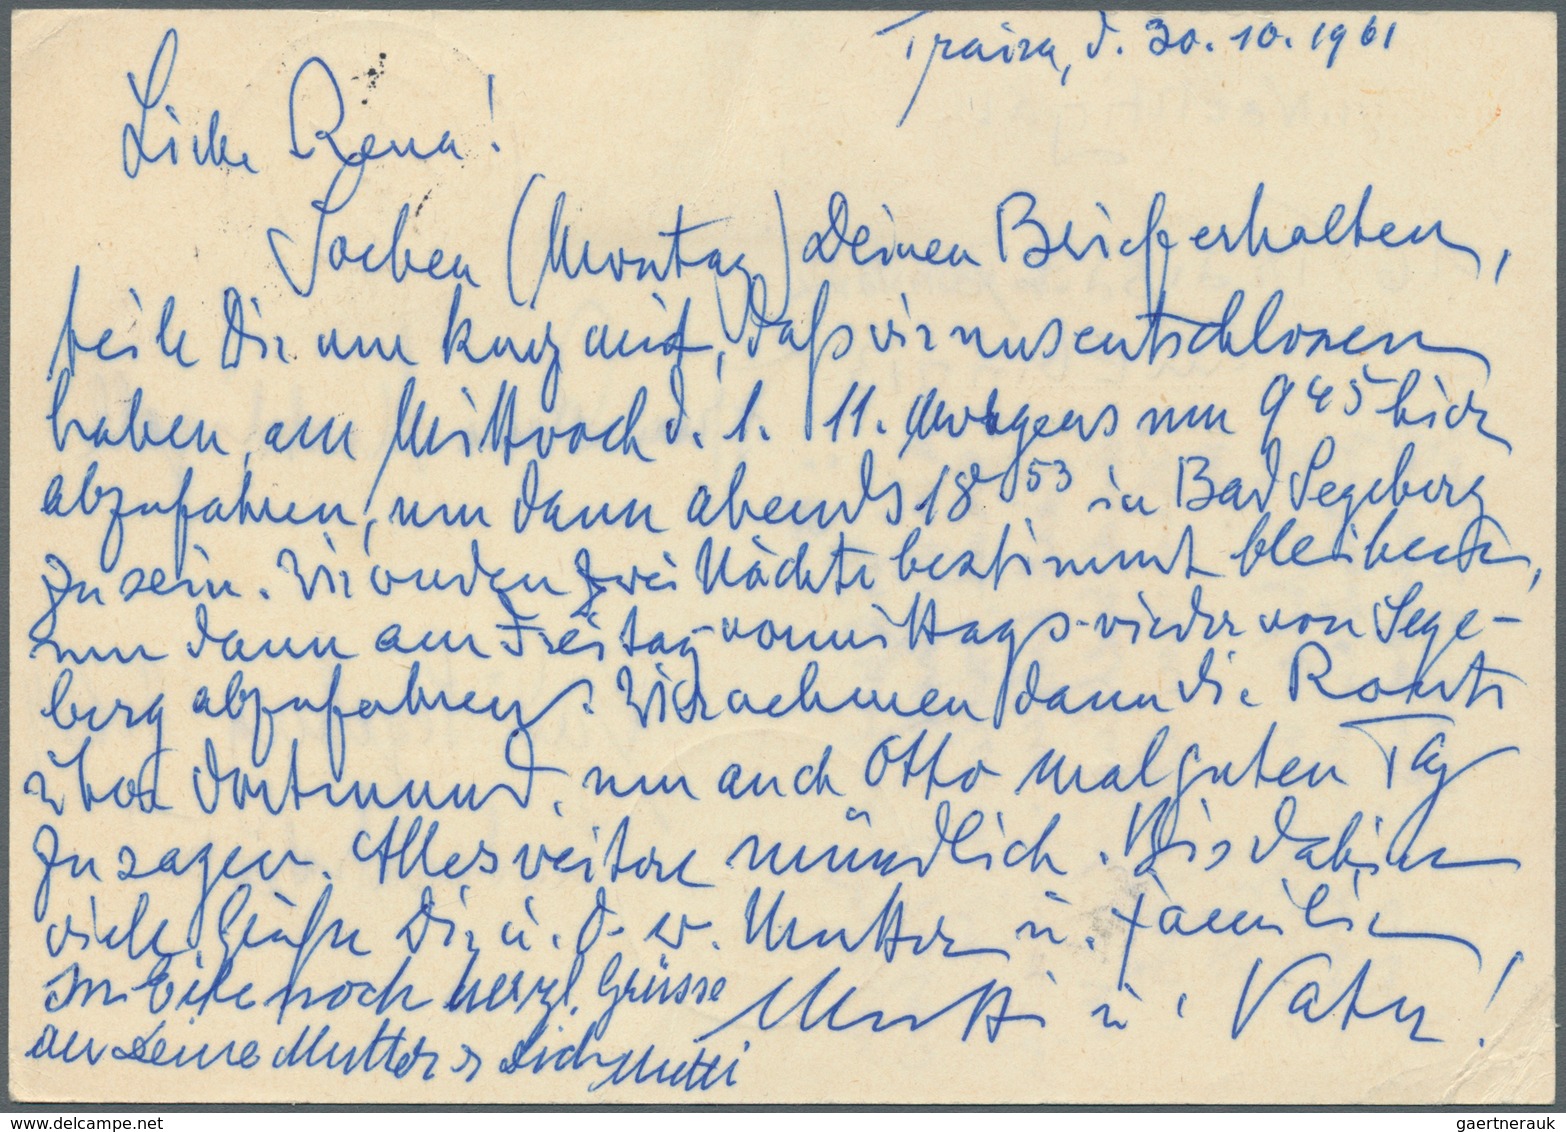 Traisa, d. 30.10.1961
Liebe Rena!
Soeben (Montag) Deinen Brief erhalten,
teile Dir nur kurz mit, daß wir uns entschlossen
haben, am Mittwoch d. 1. 11. morgens um 9 45 hier
abzufahren, um dann abends 18 53 in Bad Segeberg
zu sein. Wir werden zwei Nächte bestimmt bleiben,
um dann am Freitag-vormittags-wieder von Sege-
berg abzufahren. Wir nehmen dann die Route
über Dortmund, um auch Otto mal guten Tag
zu sagen. Alles weitere mündlich. Bis dahin
viele Grüße Dir u. d. w. Mutter u. Familie
Mutti u. Vater!
In Eile noch herzl. Grüsse
an Deine Mutter u Dich Mutti
gaertnerauk / www.delcampe.net